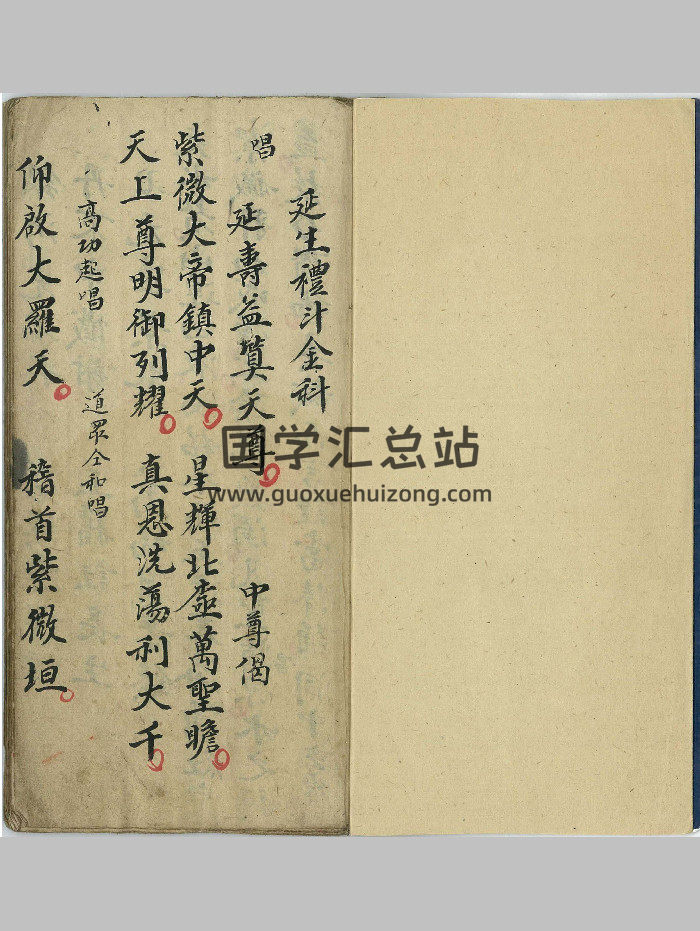 延生禮斗金科
唱 延壽益算天尊 中尊偈
紫微大帝鎮中天 星輝北壺萬聖瞻
天工尊明御列耀 真恩洗蕩利大千
高功起唱 道眾仝和唱
仰啟大羅天 稽首紫微垣
国学汇总站
www.guoxuehuizong.com